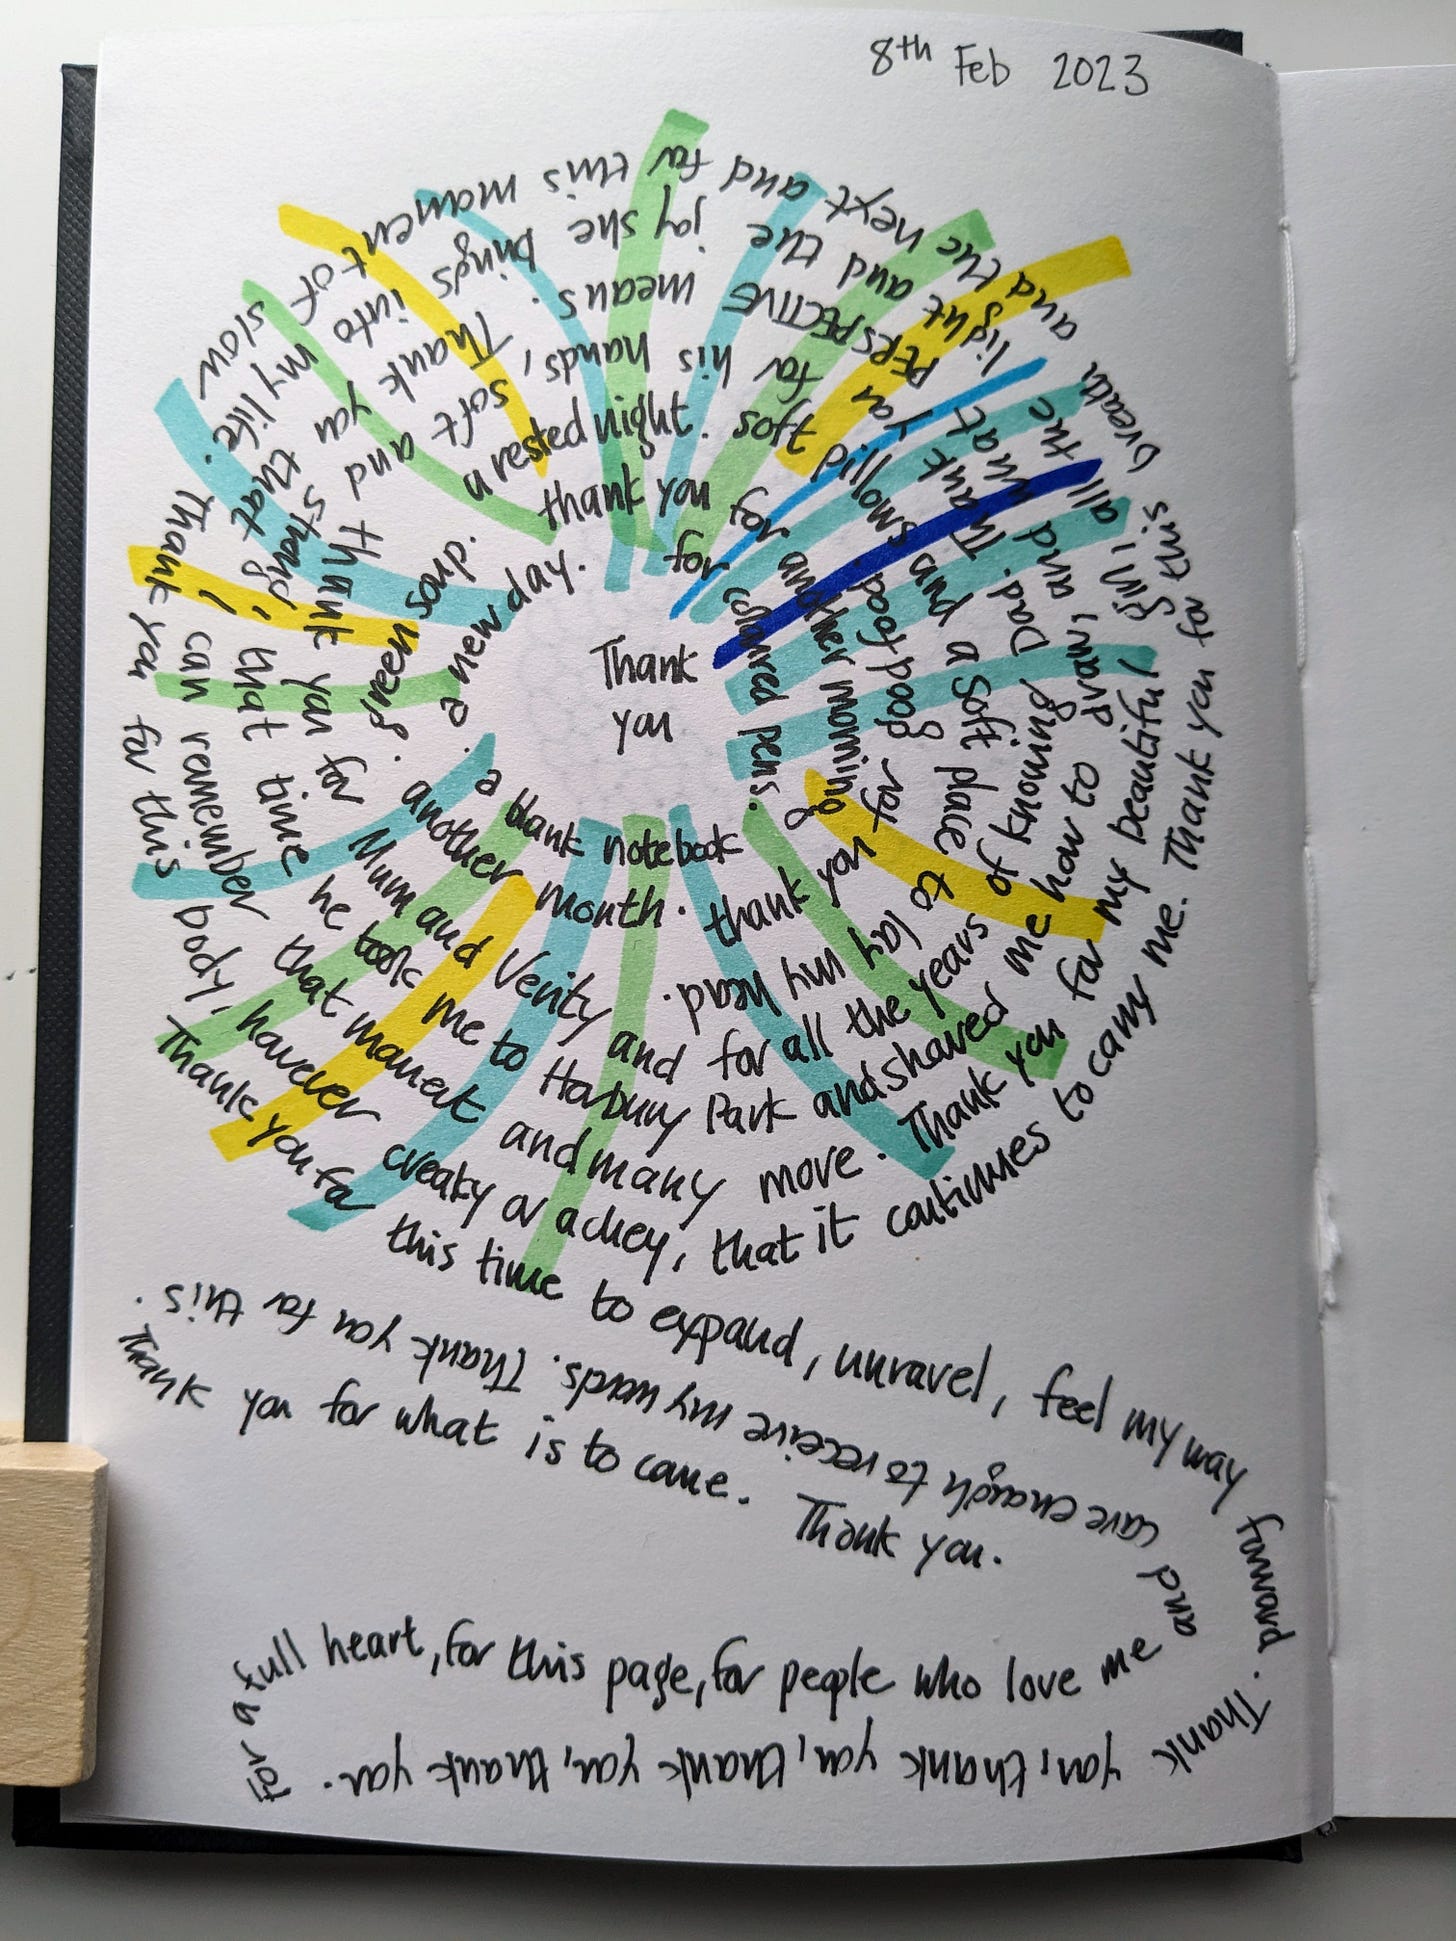 8th Feb 2023
Thank
you
for coloured pens.
a blank notebook.
a new day.
thank you
for another morning.
another month.
green soap.
a rested night.
soft pillows and a soft place to lay my head.
thank you for good food. Thank you
for Mum and Verity and for all the years of knowing Dad. Thank you
for his hands, soft and strong, that time he took me to Horbury Park and shared me how to draw, and what
PERSPECTIVE means. Thank you that I can remember that moment and many more. Thank you for my beautiful girl, all the
light and the joy she brings into my life.
Thank you for this body, however creaky or achey, that it continues to carry me. Thank you for this breath
and the next and for this moment of slow.
Thank you for this time to expand, unravel, feel my way forward.
Thank you, thank you, thank you, thank you, thank you.
For a full heart, for this page, for people who love me and
care enough to receive my words. Thank you for this.
Thank you for what is to come. Thank you.